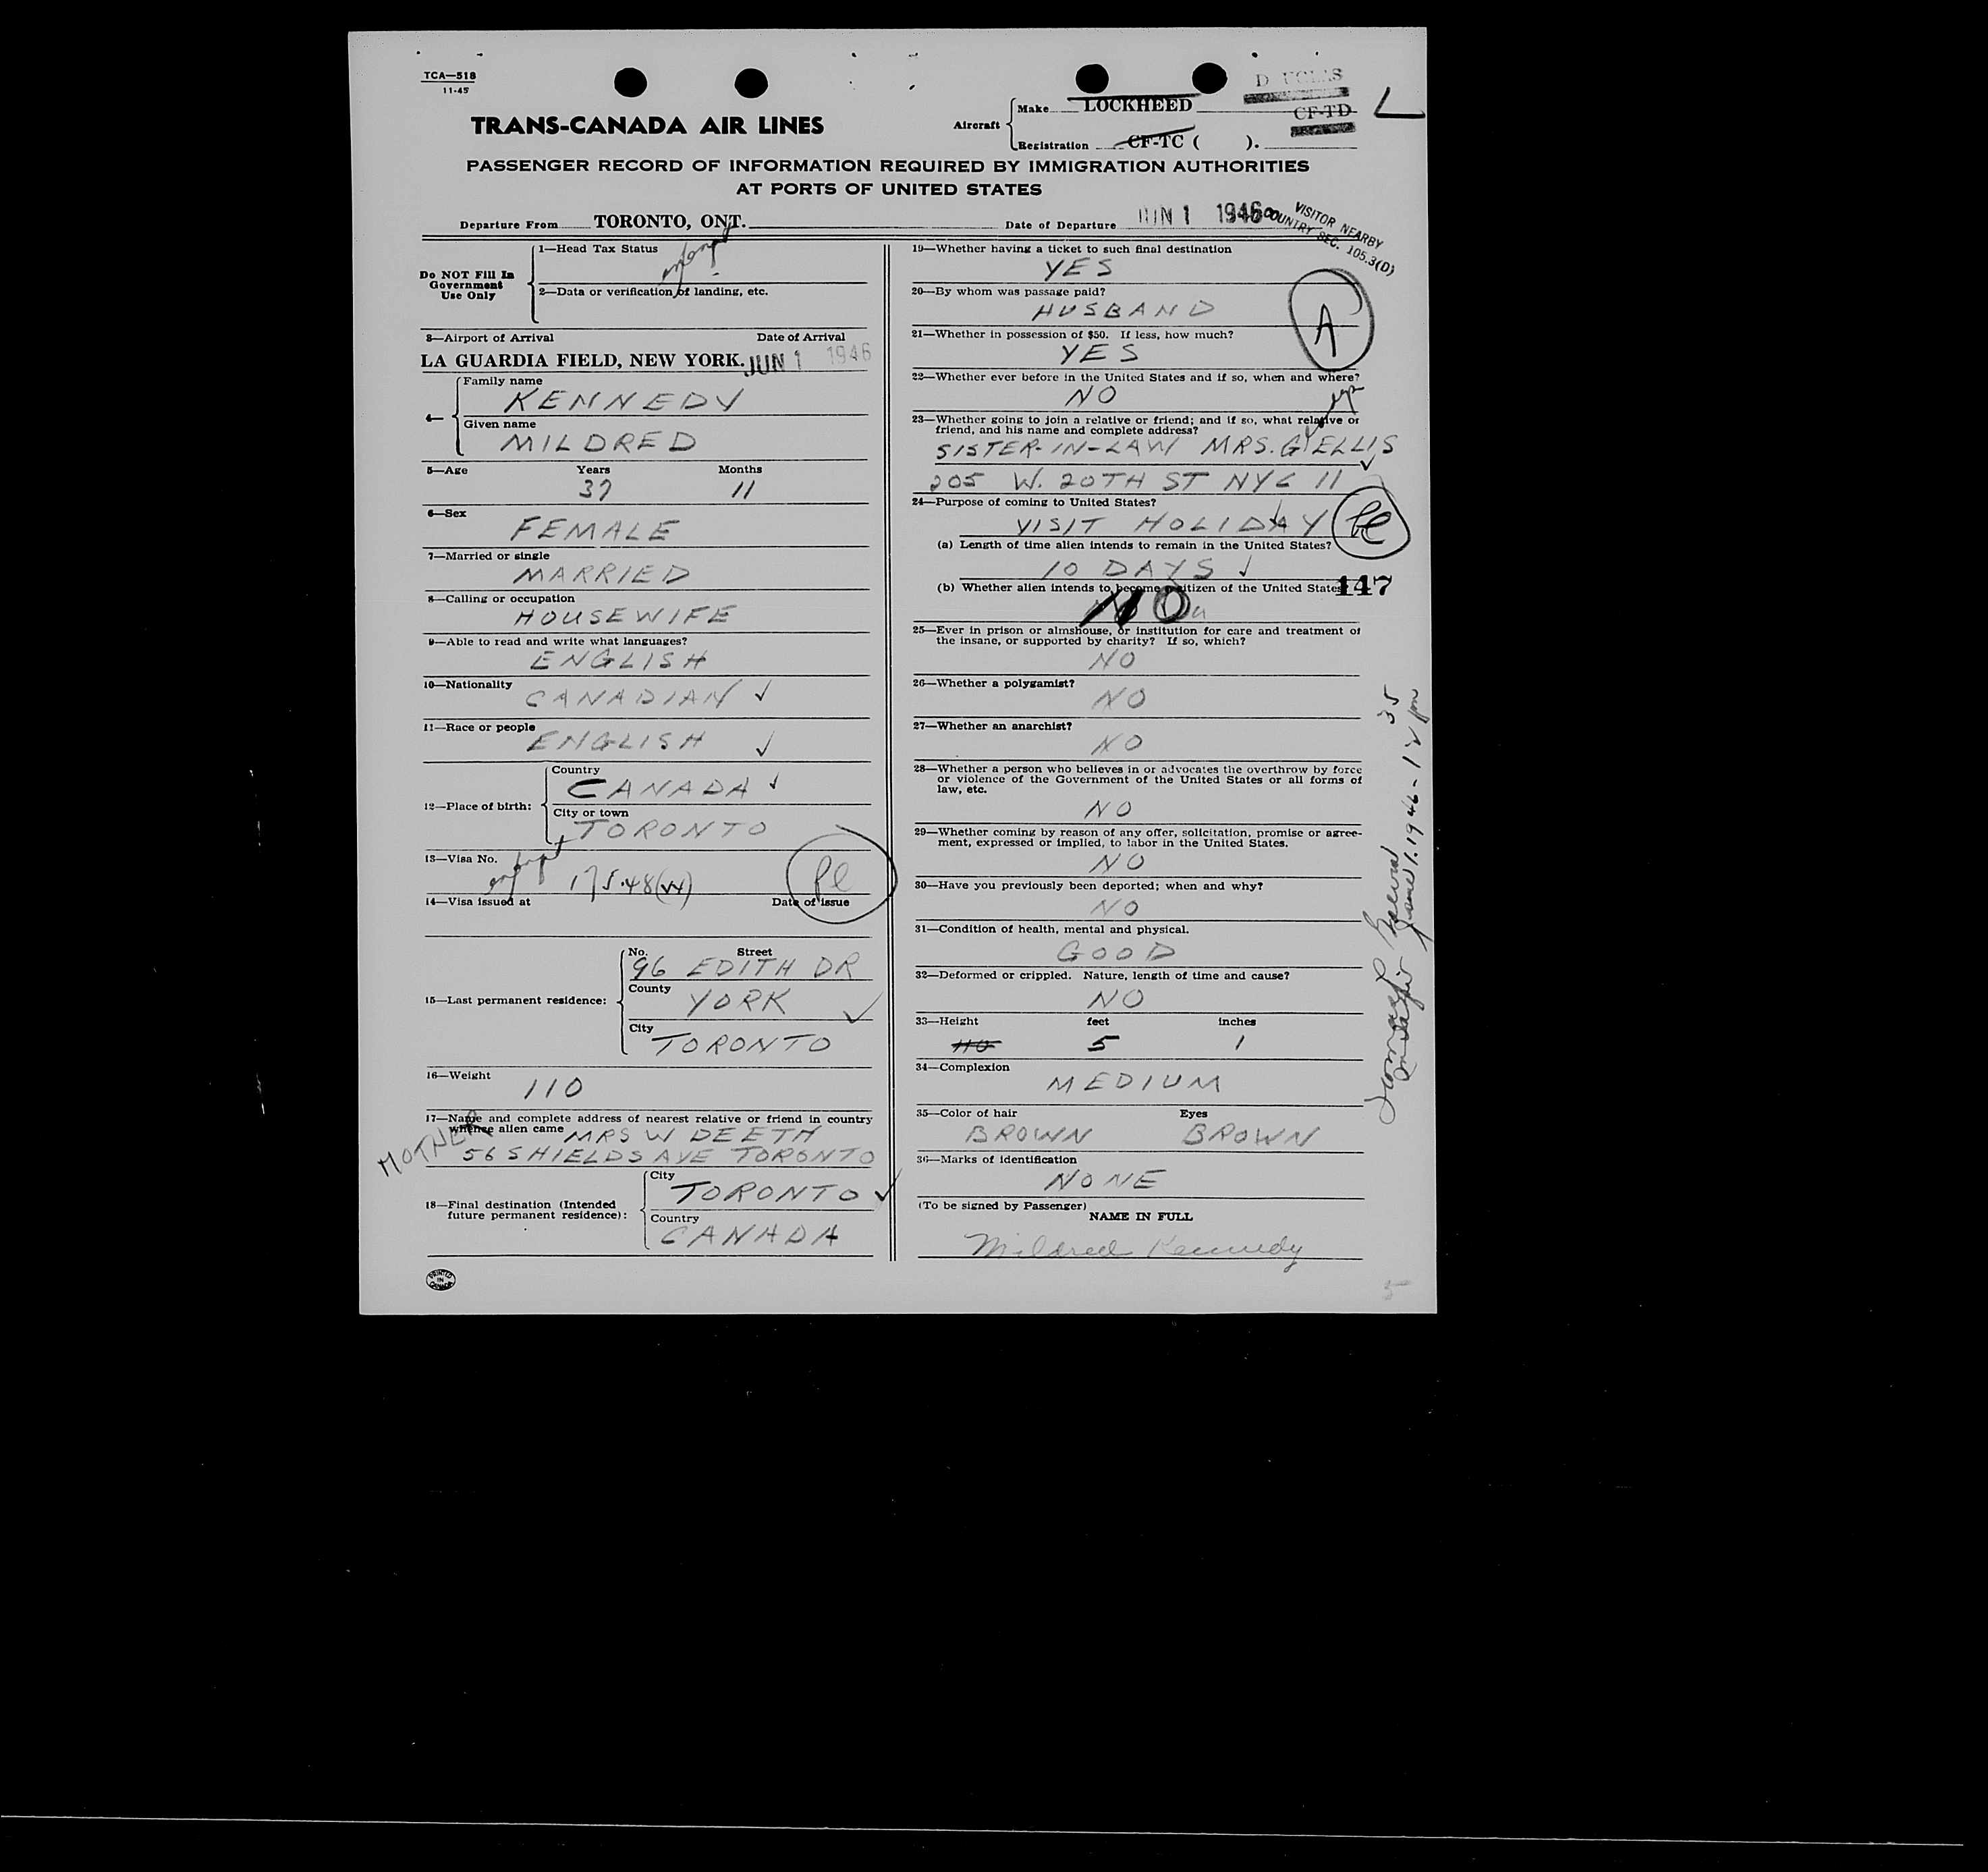 TCA—518
11-45
TRANS-CANADA AIR LINES
Aircraft
Make LOCKHEED
D UGLAS
CF-TD
Registration CF-TC ( ).
PASSENGER RECORD OF INFORMATION REQUIRED BY IMMIGRATION AUTHORITIES
AT PORTS OF UNITED STATES
Departure From TORONTO, ONT.
Date of Departure JUN 1 1946
VISITOR NEARBY
COUNTRY SEC. 105.3(D)
Do NOT Fill In
Government
Use Only
1—Head Tax Status
exempt
2—Data or verification of landing, etc.
3—Airport of Arrival Date of Arrival
LA GUARDIA FIELD, NEW YORK. JUN 1 1946
4—
Family name
KENNEDY
Given name
MILDRED
5—Age Years Months
37 11
6—Sex
FEMALE
7—Married or single
MARRIED
8—Calling or occupation
HOUSEWIFE
9—Able to read and write what languages?
ENGLISH
10—Nationality
CANADIAN ✓
11—Race or people
ENGLISH ✓
12—Place of birth:
Country
CANADA ✓
City or town
TORONTO
13—Visa No.
exempt 175.48(W)
14—Visa issued at Date of issue
15—Last permanent residence:
No. Street
96 EDITH DR
County
YORK ✓
City
TORONTO
16—Weight
110
17—Name and complete address of nearest relative or friend in country
whence alien came MRS W DEETH
MOTHER
56 SHIELDS AVE TORONTO
18—Final destination (Intended
future permanent residence):
City
TORONTO ✓
Country
CANADA
PRINTED
IN
CANADA
19—Whether having a ticket to such final destination
YES
20—By whom was passage paid?
HUSBAND
A
21—Whether in possession of $50. If less, how much?
YES
22—Whether ever before in the United States and if so, when and where?
NO
23—Whether going to join a relative or friend; and if so, what relative or
friend, and his name and complete address?
SISTER-IN-LAW MRS. G ELLIS
205 W. 20TH ST NYC 11
24—Purpose of coming to United States?
VISIT HOLIDAY
(a) Length of time alien intends to remain in the United States?
10 DAYS ✓
(b) Whether alien intends to become a citizen of the United States
147
NO
25—Ever in prison or almshouse, or institution for care and treatment of
the insane, or supported by charity? If so, which?
NO
26—Whether a polygamist?
NO
27—Whether an anarchist?
NO
28—Whether a person who believes in or advocates the overthrow by force
or violence of the Government of the United States or all forms of
law, etc.
NO
29—Whether coming by reason of any offer, solicitation, promise or agree-
ment, expressed or implied, to labor in the United States.
NO
30—Have you previously been deported; when and why?
NO
31—Condition of health, mental and physical.
GOOD
32—Deformed or crippled. Nature, length of time and cause?
NO
33—Height feet inches
110 5 1
34—Complexion
MEDIUM
35—Color of hair Eyes
BROWN BROWN
36—Marks of identification
NONE
(To be signed by Passenger)
NAME IN FULL
Mildred Kennedy
June 1. 1946 - 12 35 pm
5